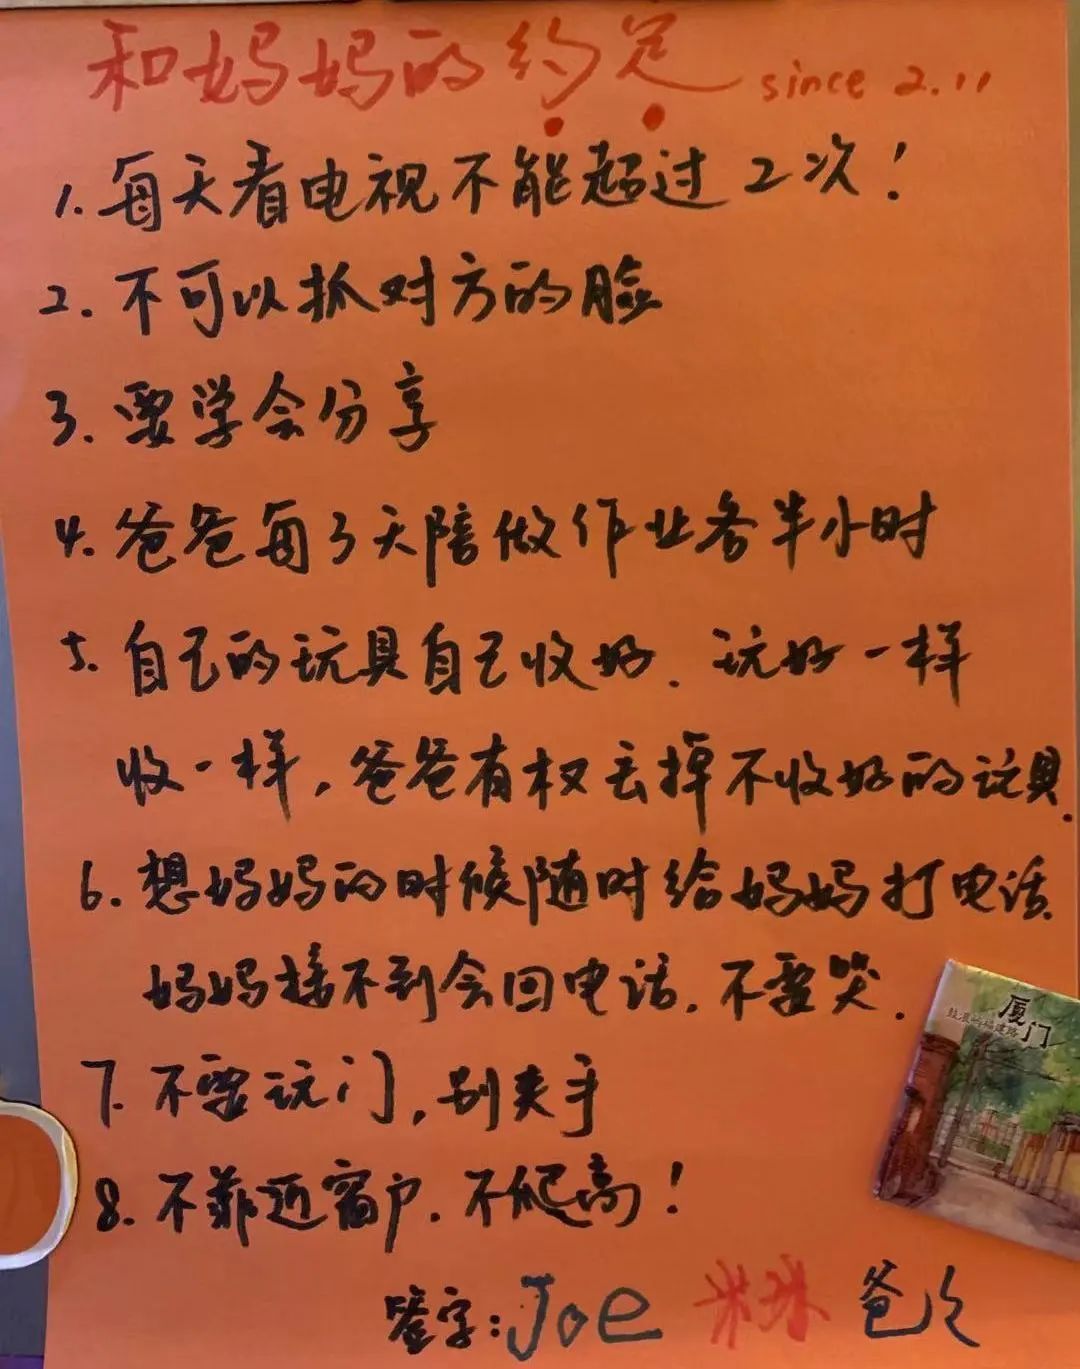 和妈妈的约定 since 2.11
1. 每天看电视不能超过2次!
2. 不可以抓对方的脸
3. 要学会分享
4. 爸爸每3天陪做作业各半小时
5. 自己的玩具自己收好. 玩好一样
收一样, 爸爸有权丢掉不收好的玩具.
6. 想妈妈的时候随时给妈妈打电话.
妈妈接不到会回电话. 不要哭.
7. 不要玩门, 别夹手
8. 不靠近窗户. 不爬高!
厦门
签字: Joe 爸爸